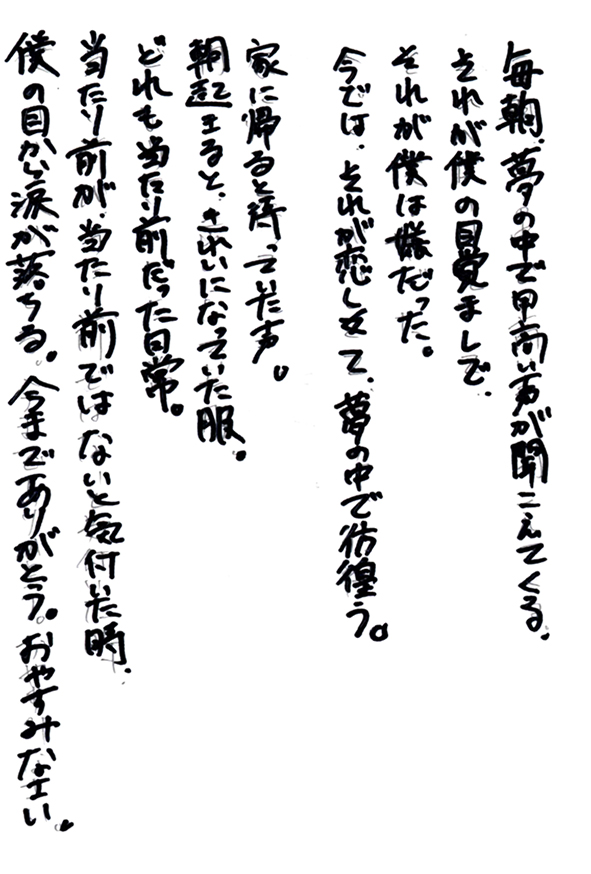 毎朝、夢の中で甲高い声が聞こえてくる、
それが僕の目覚ましで、
それが僕は嫌だった。
今では、それが恋しくて、夢の中で彷徨う。
家に帰ると待っていた声。
朝起きると、きれいになっていた服。
どれも当たり前だった日常。
当たり前が、当たり前ではないと気付いた時、
僕の目から涙が落ちる。今までありがとう。おやすみなさい。